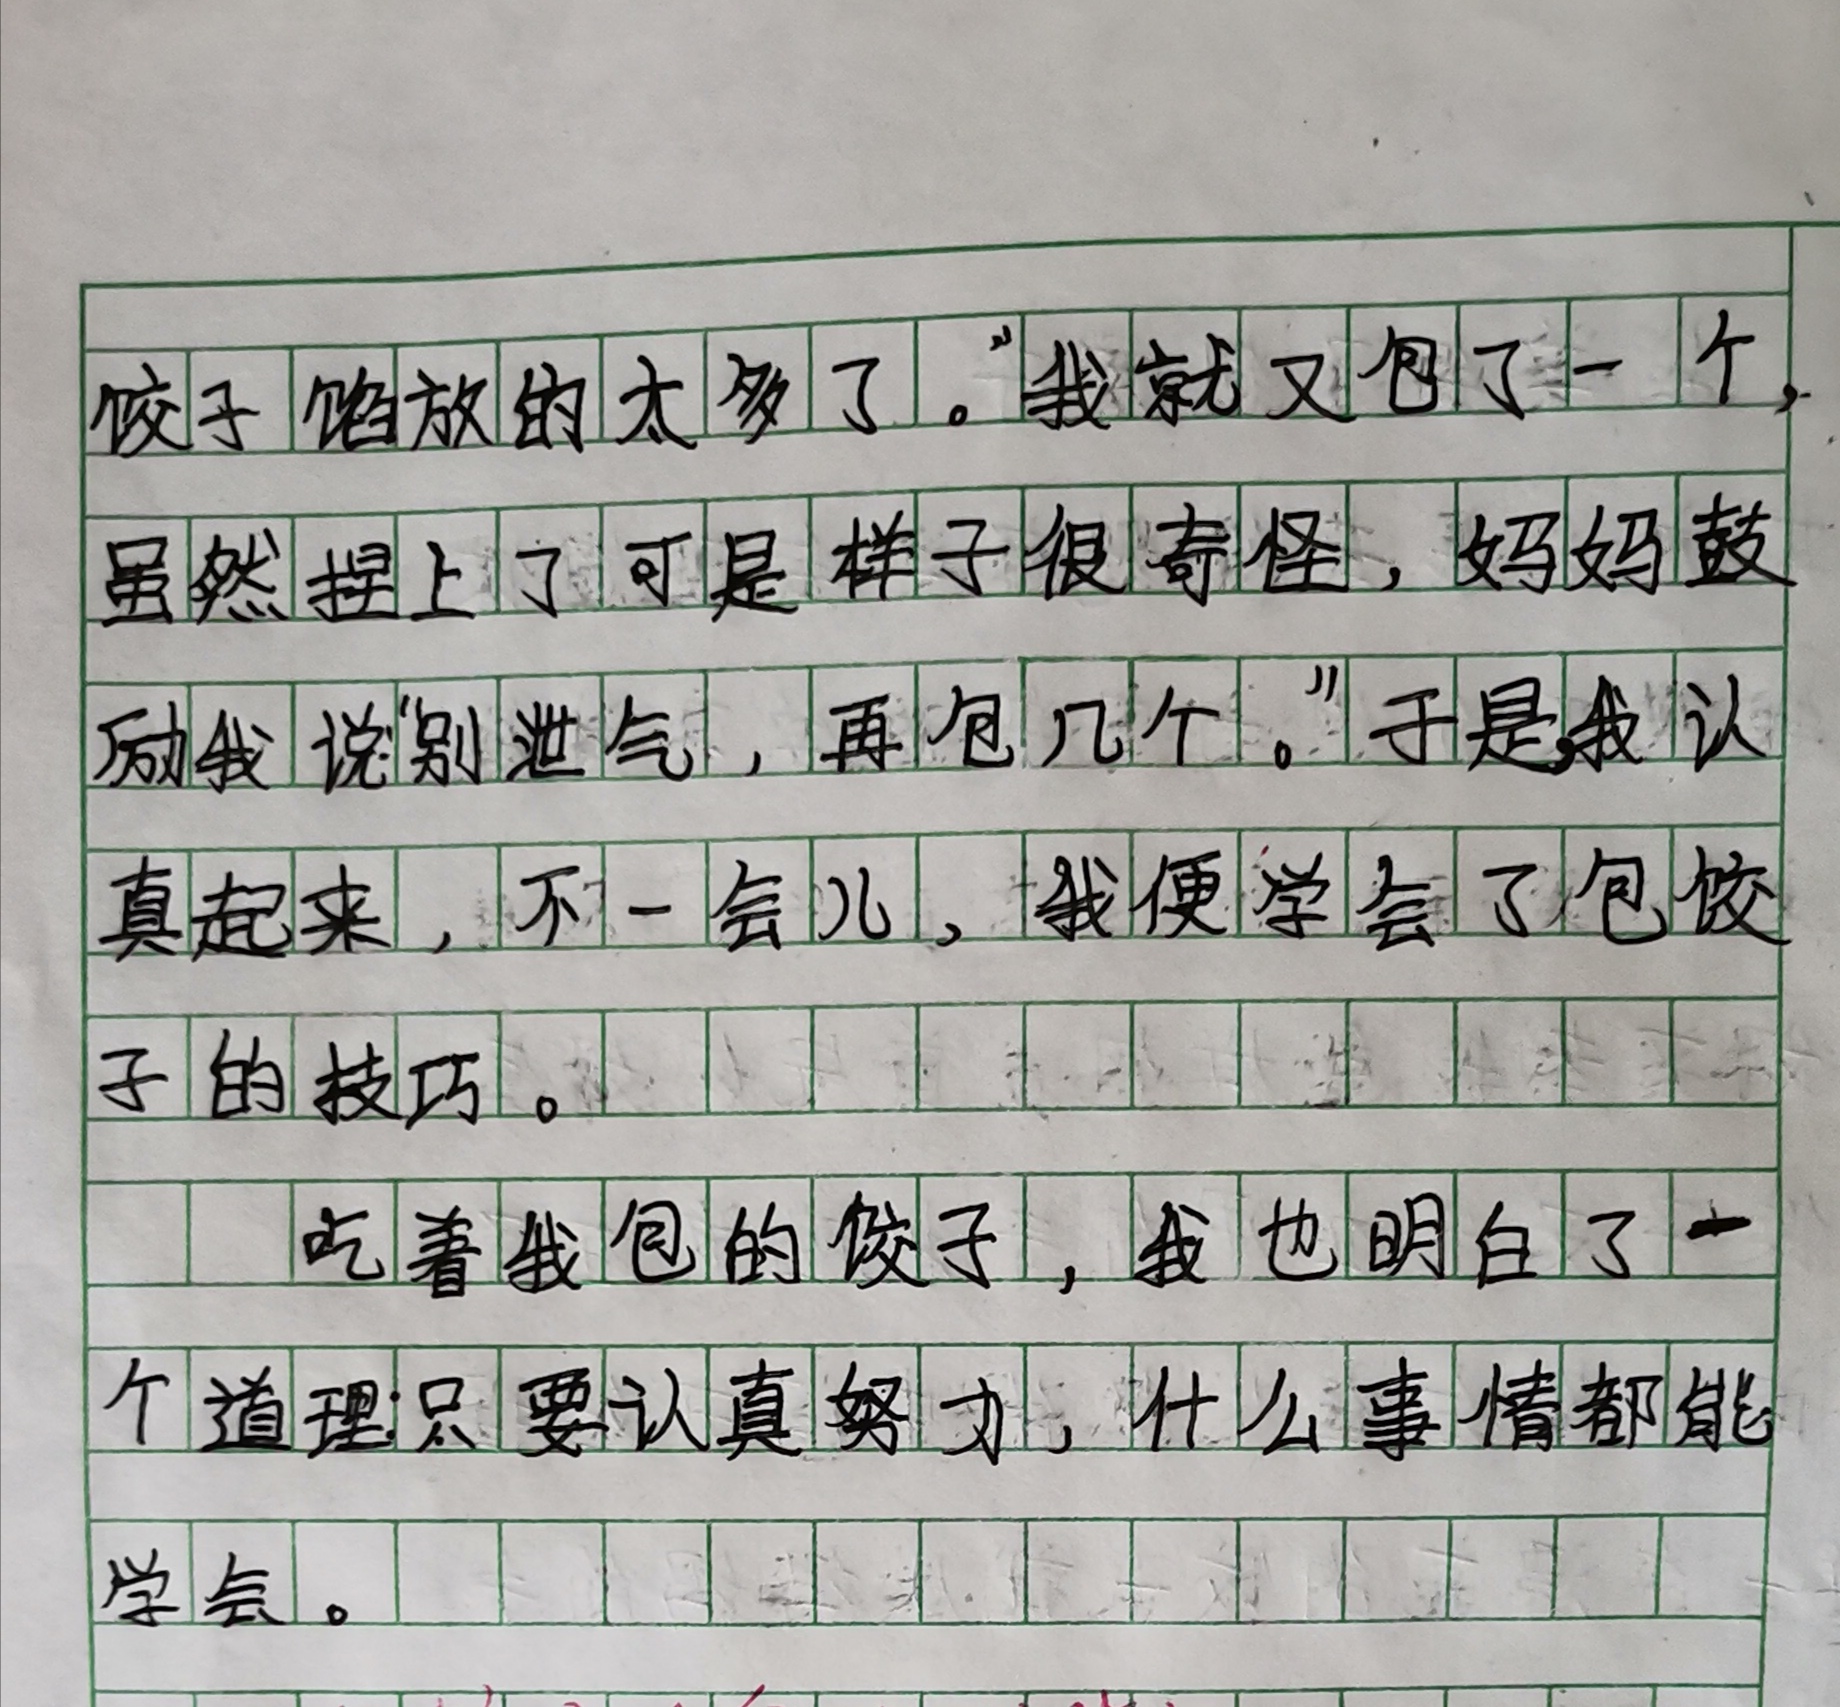 饺子馅放的太多了。”我就又包了一个，
虽然捏上了可是样子很奇怪，妈妈鼓
励我说“别泄气，再包几个。”于是，我认
真起来，不一会儿，我便学会了包饺
子的技巧。
吃着我包的饺子，我也明白了一
个道理：只要认真努力，什么事情都能
学会。